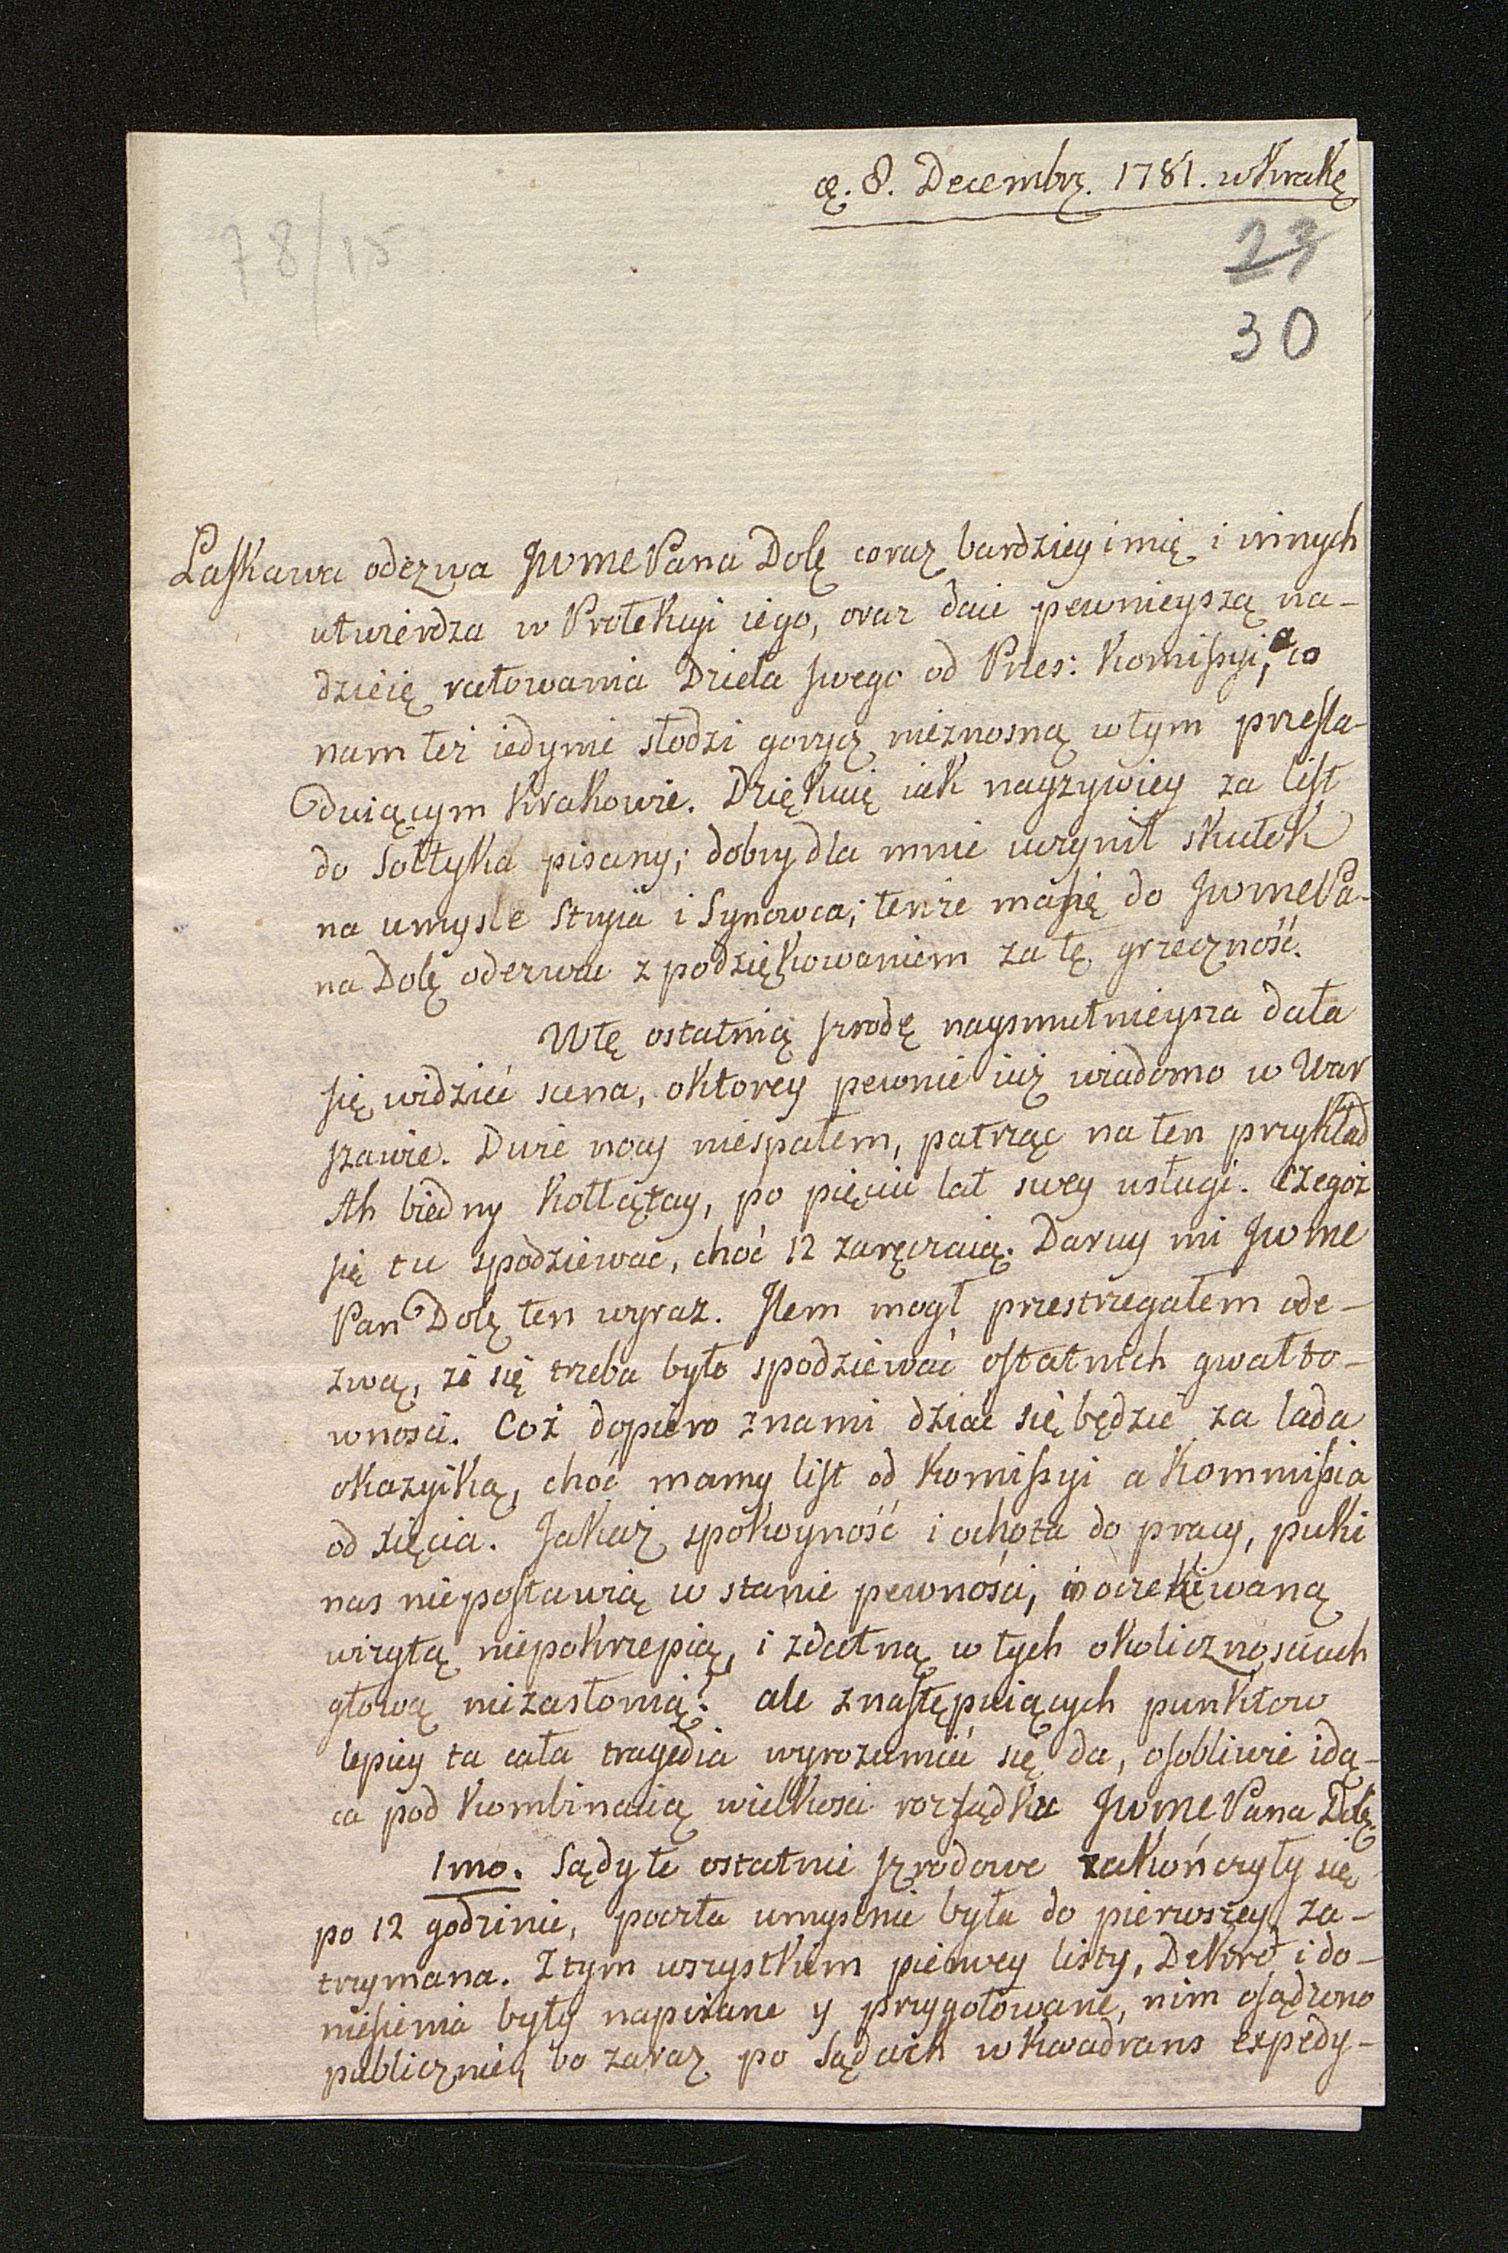 8. Decembr. 1781. w Krakę
78/15
23
30
Laskawa odezwa JWmePana Dolę coraz bardziey i mię i innych
utwierdza w Protekcyi iego, oraz daie pewnieyszą na-
dzieię ratowania Dzieła swego od Prześ: Komissyi, a co
nam też iedynie słodzi gorycz nieznosną w tym prześla-
duiącym Krakowie. Dziękuię iak nayzywiey za list
do Sołtyka pisany; dobry dla mnie uczynił skutek
na umysle Stryia i Synowca; tenże ma się do JWmePa-
na Dolę odezwac z podziękowaniem za tę grzeczność.
W tę ostatnią szrodę naysmutnieysza dała
się widzieć scena, o ktorey pewnie iuż wiadomo w War
szawie. Dwie nocy niespałem, patrząc na ten przykład
Ah biedny Kołłątay, po pięciu lat swey usługi. Czegoż
się tu spodziewac, choć 12 zaręczaią. Daruy mi JWme
Pan Dolę ten wyraz. Ilem mogł przestrzegałem ode-
zwą, że się trzeba było spodziewać ostatnich gwałto-
wnosci. Coż dopiero z nami dziac się będzie za lada
okazyiką, choć mamy list od Komissyi a Kommissia
od xięcia. Jakaż spokoyność i ochota do pracy, puki
nas niepostawią w stanie pewności, oczekiwaną
wizytą niepokrzepią, i zdatną w tych okolicznosciach
głową niezasłonią? ale z następuiących punktow
lepiey ta cała tragedia wyrozumieć się da, osobliwie idą-
ca pod kombinacią wielkosci rozsądku JWmePana Dolę
1mo. Sądy te ostatnie szrodowe zakończyły się
po 12 godzinie, poczta umyslnie była do pierwszey za-
trzymana. Z tym wszystkim pierwey listy, Dekret i do-
niesienia były napisane y przygotowane, nim osądzono
publicznie, bo zaraz po sądach w kwadrans expedy-